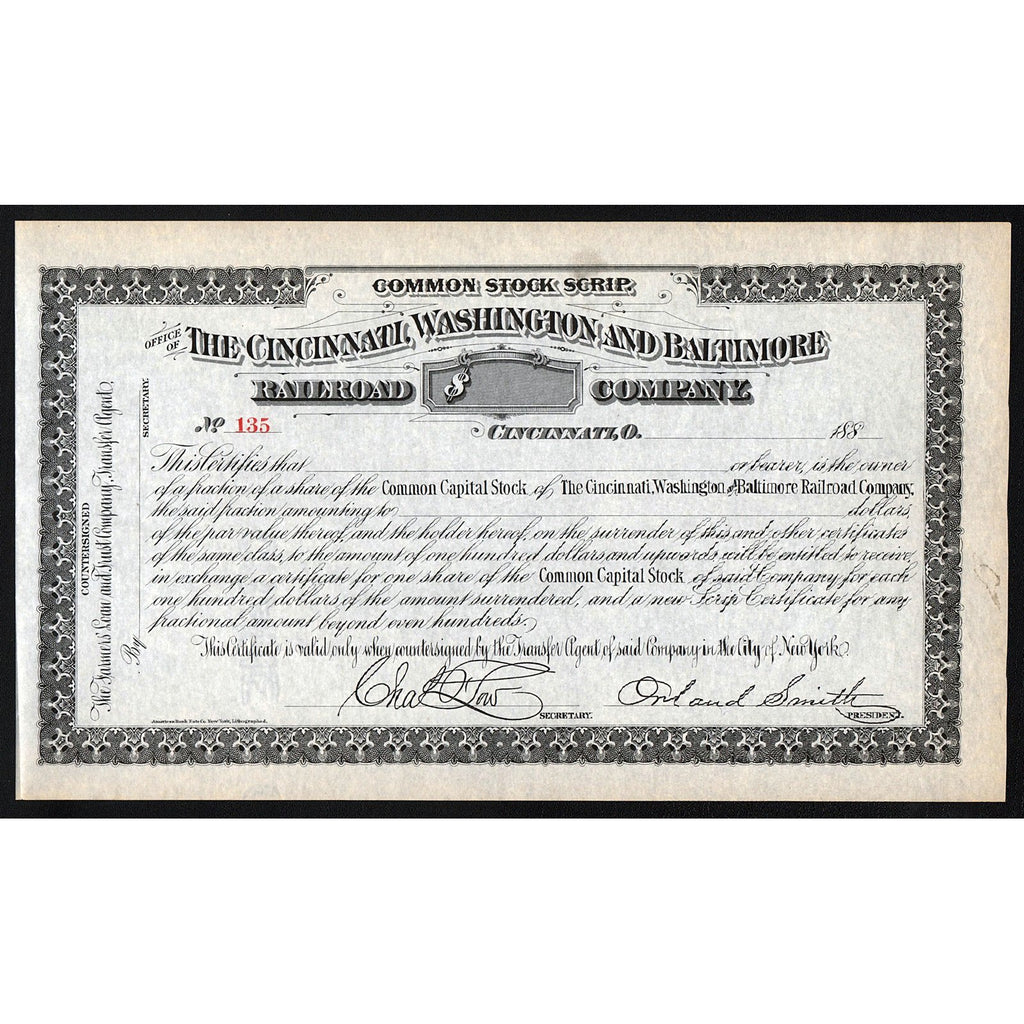 COMMON STOCK SCRIP.
OFFICE OF
THE CINCINNATI, WASHINGTON AND BALTIMORE
RAILROAD $ COMPANY.
No 135
CINCINNATI, O. 188
This Certifies that or bearer, is the owner
of a fraction of a share of the Common Capital Stock of The Cincinnati, Washington and Baltimore Railroad Company,
the said fraction amounting to dollars,
of the par value thereof, and the holder hereof, on the surrender of this and other certificates
of the same class, to the amount of one hundred dollars and upwards will be entitled to receive,
in exchange, a certificate for one share of the Common Capital Stock of said Company for each
one hundred dollars of the amount surrendered, and a new Scrip Certificate for any
fractional amount beyond even hundreds.
This Certificate is valid only when countersigned by the Transfer Agent of said Company in the City of New York.
Orland Smith
SECRETARY.
PRESIDENT.
American Bank Note Co. New York, Lithographed.
COUNTERSIGNED
The Farmers' Loan and Trust Company, Transfer Agent,
By
SECRETARY.